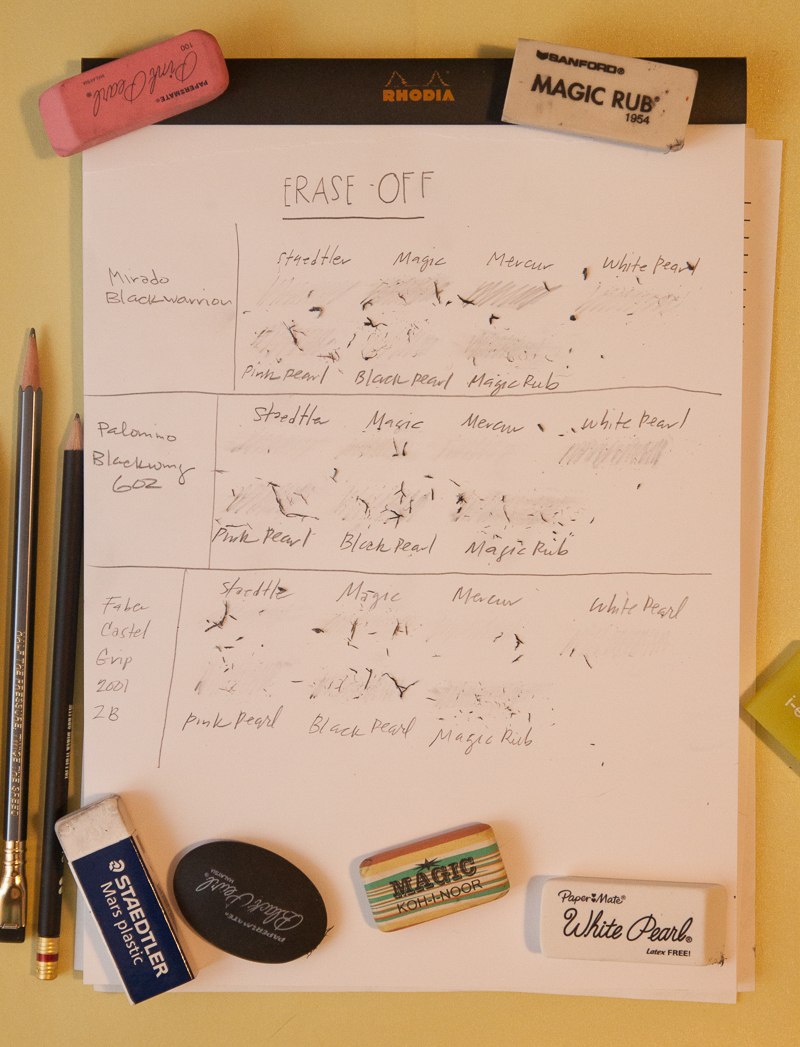 PAPERMATE®
Pink Pearl®
MALAYSIA
100
RHODIA
SANFORD®
MAGIC RUB®
1954
ERASE-OFF
Mirado
Blackwarrior
Staedtler Magic Mercur White Pearl
Pink Pearl Black Pearl Magic Rub
Palomino
Blackwing
602
Staedtler Magic Mercur White Pearl
Pink Pearl Black Pearl Magic Rub
Faber
Castel
Grip
2001
2B
Staedtler Magic Mercur White Pearl
Pink Pearl Black Pearl Magic Rub
HALF THE PRESSURE, TWICE THE SPEED
i-e
STAEDTLER
Mars plastic
PAPERMATE®
Black Pearl®
MALAYSIA
MAGIC
KOH-I-NOOR
Paper Mate®
White Pearl®
Latex FREE!